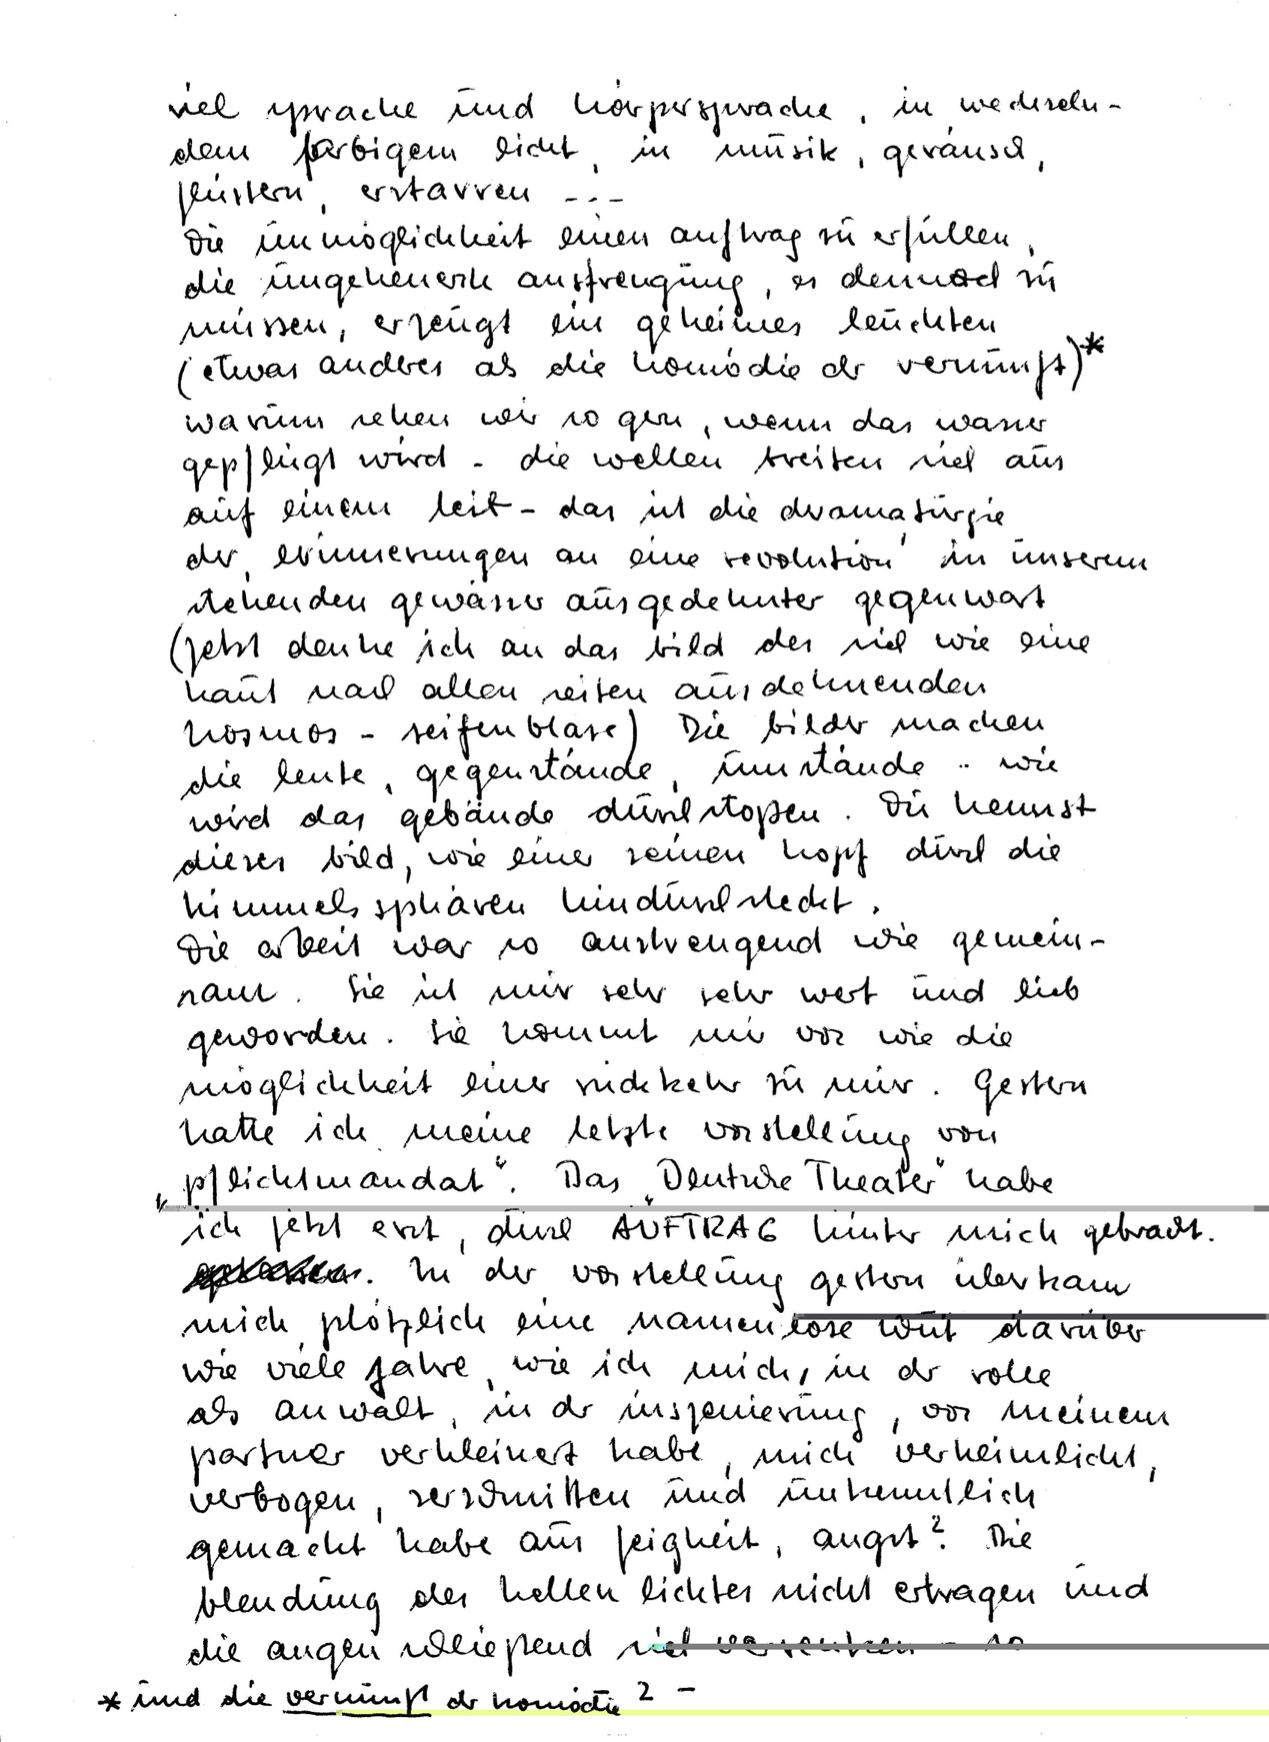 viel sprache und körpersprache, in wechseln-
dem farbigem licht, in musik, geräusch,
flüstern, erstarren ---
Die unmöglichkeit einen auftrag zu erfüllen,
die ungeheuerle anstrengung, es dennoch zu
müssen, erzeugt ein geheimes leuchten
(etwas anderes als die komödie der vernunft)*
warum sehen wir so gern, wenn das wasser
gepflügt wird - die wellen breiten sich aus
auf einem - das ist die dramaturgie
der 'erinnerungen an eine revolution' in unserem
stehenden gewässer ausgedehnter gegenwart
(jetzt denke ich an das bild des sich wie eine
haut nach allen seiten ausdehnenden
kosmos - seifenblase) Die bilder machen
die leute, gegenstände, umstände - wie
wird das gebäude durchstoßen. Du kennst
dieses bild, wie einer seinen kopf durch die
himmelssphären hindurchsteckt.
Die arbeit war so anstrengend wie gemein-
sam. Sie ist mir sehr sehr wert und lieb
geworden. Sie kommt mir vor wie die
möglichkeit einer rückkehr zu mir. Gestern
hatte ich meine letzte vorstellung von
„pflichtmandat“. Das „Deutsche Theater“ habe
ich jetzt erst, durch AUFTRAG hinter mich gebracht.
In der vorstellung gestern überkam
mich plötzlich eine namenlose wut darüber
wie viele jahre, wie ich mich, in der rolle
als anwalt, in der inszenierung, vor meinem
partner verkleinert habe, mich verheimlicht,
verbogen, zerschnitten und unkenntlich
gemacht habe aus feigheit, angst? Die
blendung des hellen lichtes nicht ertragen und
die augen schließend sich versenken - so
* und die vernunft der komödie? -